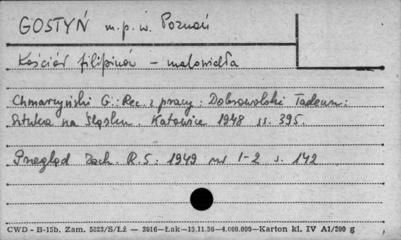 GOSTYŃ m.p. w. Poznań
Kościół filipinów – malowidła
Chmarzyński G.: Rec. z pracy: Dobrowolski Tadeusz:
Sztuka na Śląsku. Katowice 1948 ss. 395.
Przegląd Zach. R.5: 1949 nr 1-2 s. 142
CWD - B-15b. Zam. 5823/S/Łż — 3916—Łak—15.11.56—4.000.000—Karton kl. IV A1/200 g